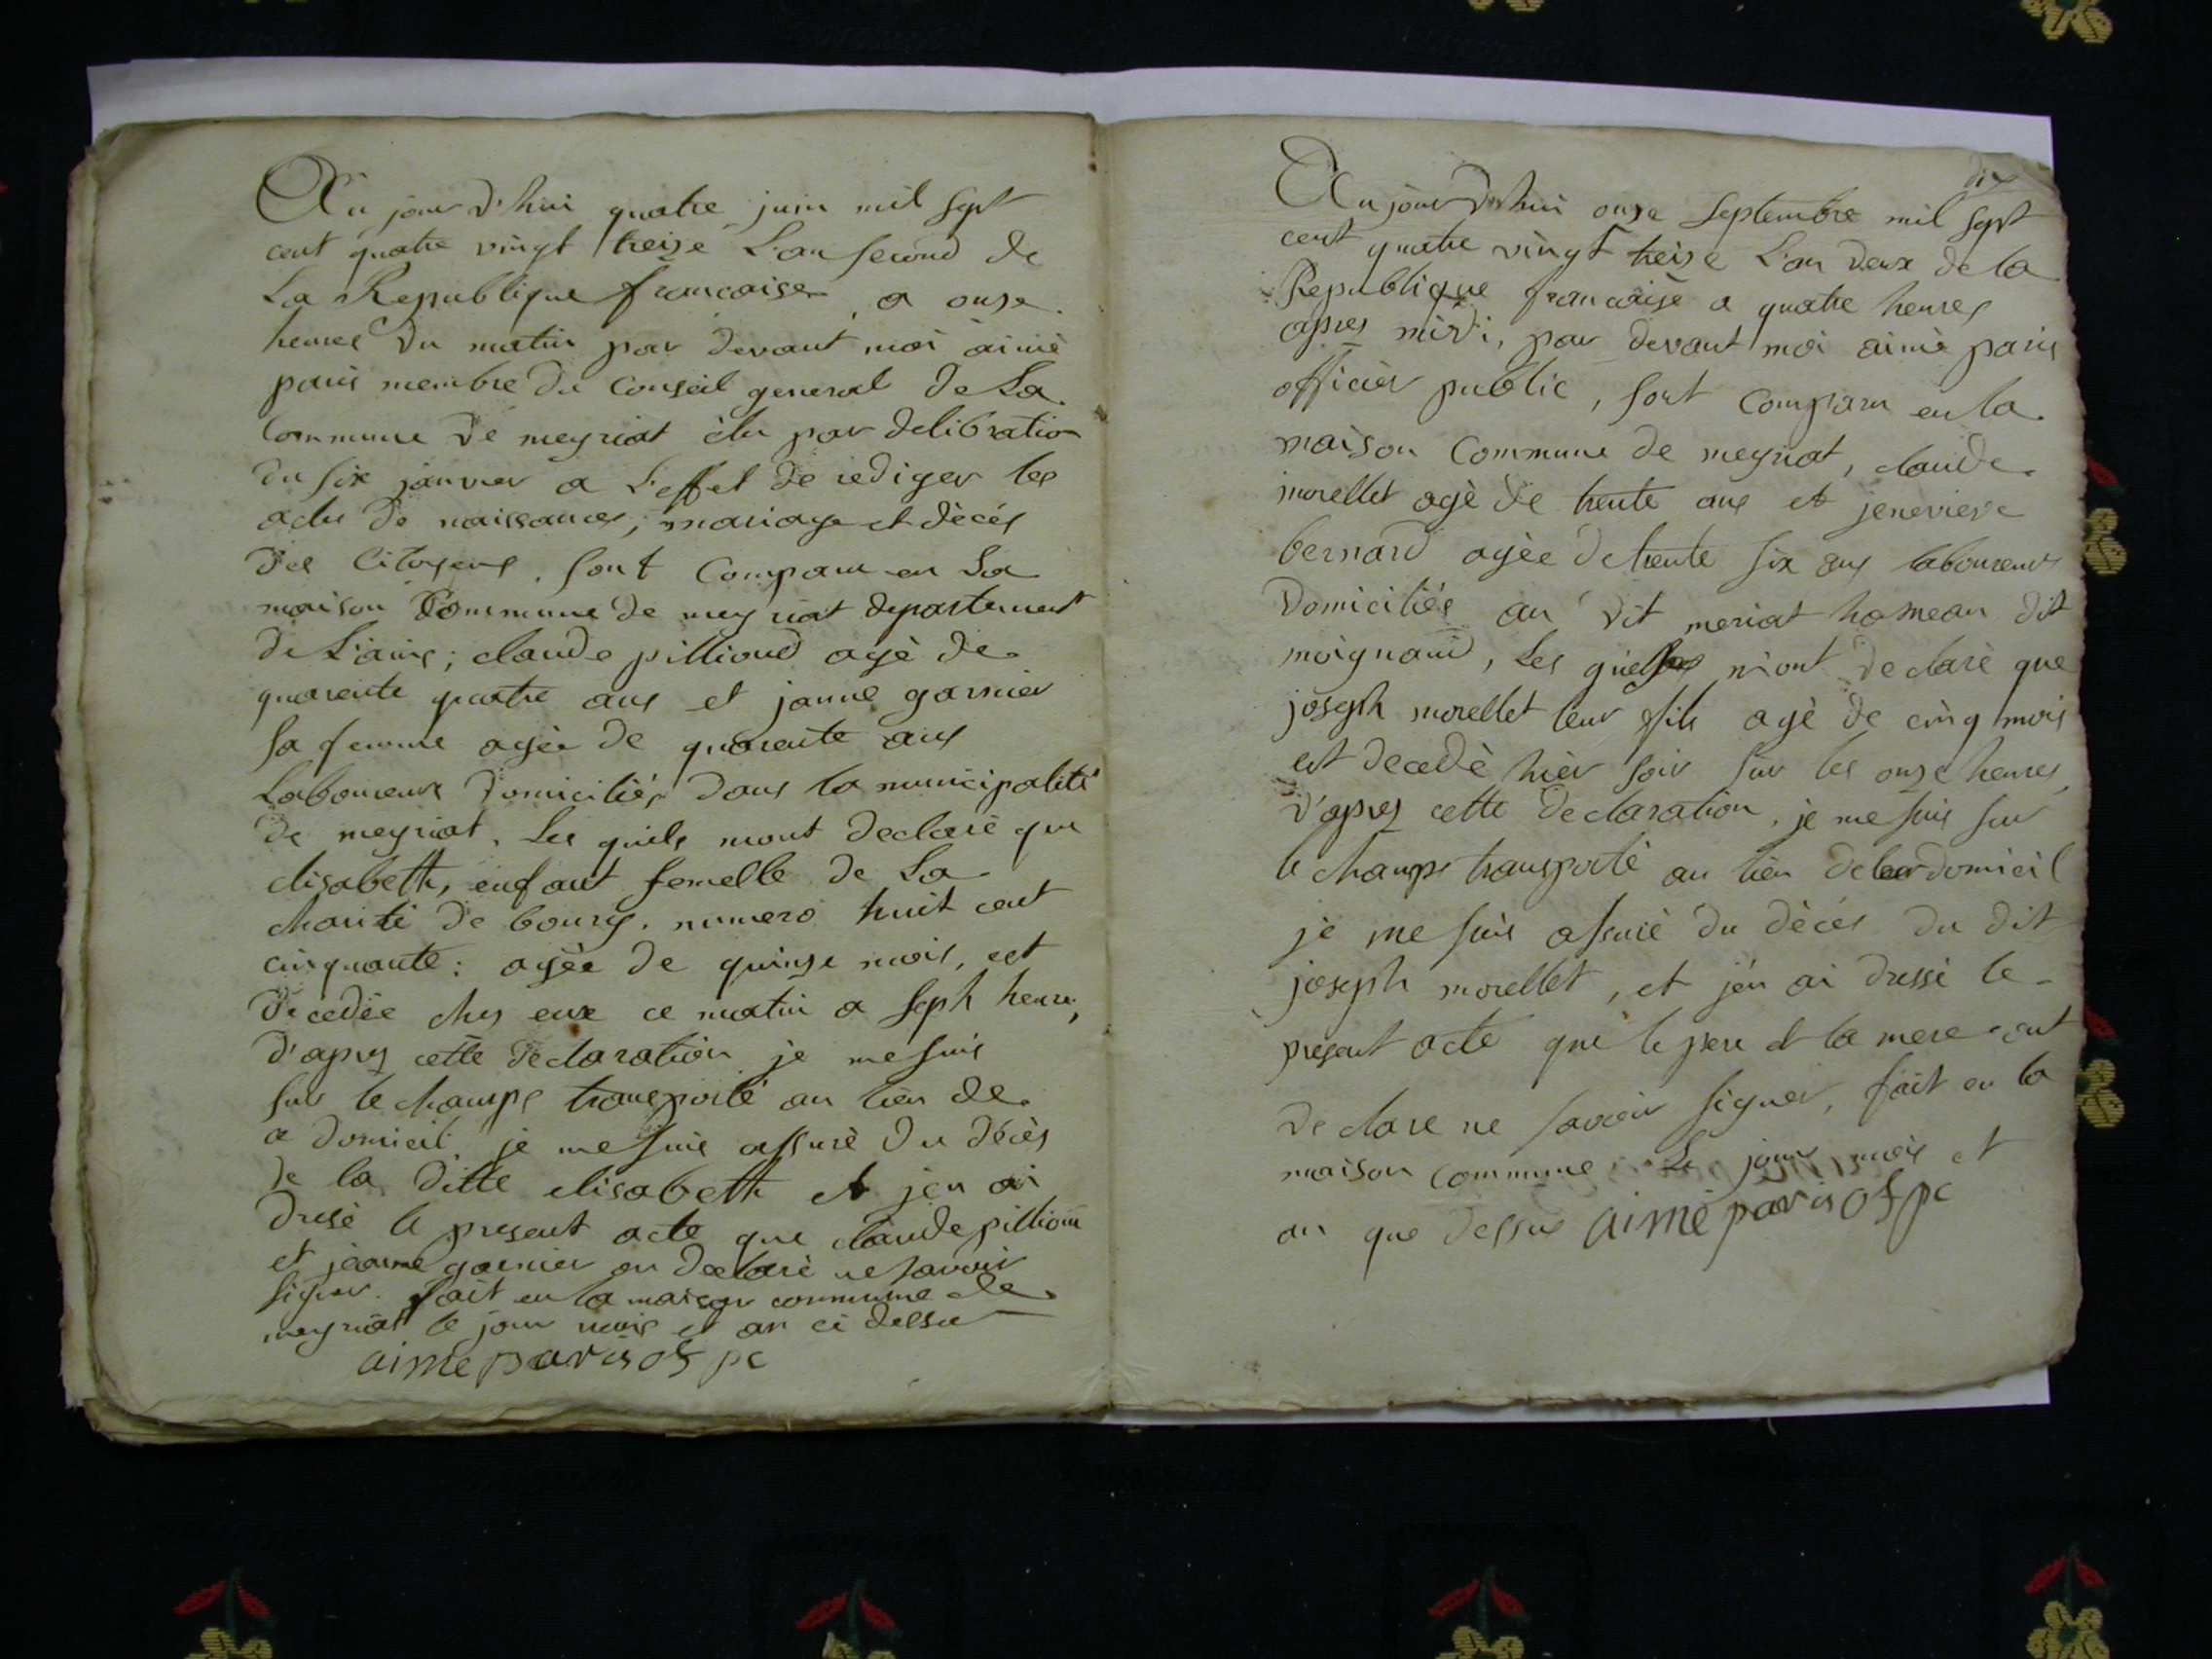 Au jour d'hui quatre juin mil sept
cent quatre vingt treize L'an second de
La Republique francaise, a onze
heures du matin par devant moi aimè
paris membre du Conseil general de La
Commune de meyriat èlu par delibration
du six janvier a L'effet de rediger les
actes de naissances, mariage et dècés
des Citoyens, sont Comparu en La
maison Commune de meyriat departement
de L'ains; claude pillioud agè de
quarente quatre ans et janne garnier
sa femme agèe de quarente ans
Laboureurs domiciliés dans la municipalité
de meyriat. Les quels mont declarè que
elisabeth, enfant femelle de La
charité de bourg. numero huit cent
cinquante: agèe de quinze mois, est
decedèe ches eux ce matin a seph heure,
D'apres cette declaration je me suis
sur le champs transporté au lieu de
a domicil je me suis assurè du décès
de la ditte elisabeth et jen ai
dresè le present acte que claude pillioud
et jeanne garnier on declarè ne savoir
signer. fait en la maison commune de
meyriat le jour mois et an ci dessu
aime paris of pc
dix
Au jour d'hui onze septembre mil sept
cent quatre vingt treize L'an deux de la
Republique francaise a quatre heures
apres midi, par devant moi aimè paris
officier public, sont Comparu en la
maison Commune de meyriat, claude
morellet agè de trente ans et jenevieve
bernard agèe de trente six ans laboureurs
domiciliés au dit meriat hameau dit
moignaud, Les quels m'ont declarè que
joseph morellet leur fils agè de cinq mois
est decedè hièr soir sur les onze heures,
d'apres cette declaration, je me suis sur
le champs transportè au lieu de leur domicil
je me suis assurè du dècés du dit
joseph morellet, et j'en ai dressè le
present acte que le pere et la mere ont
declare ne savoir signer, fait en la
maison commune Le jour mois et
an que dessus aimé paris of pc